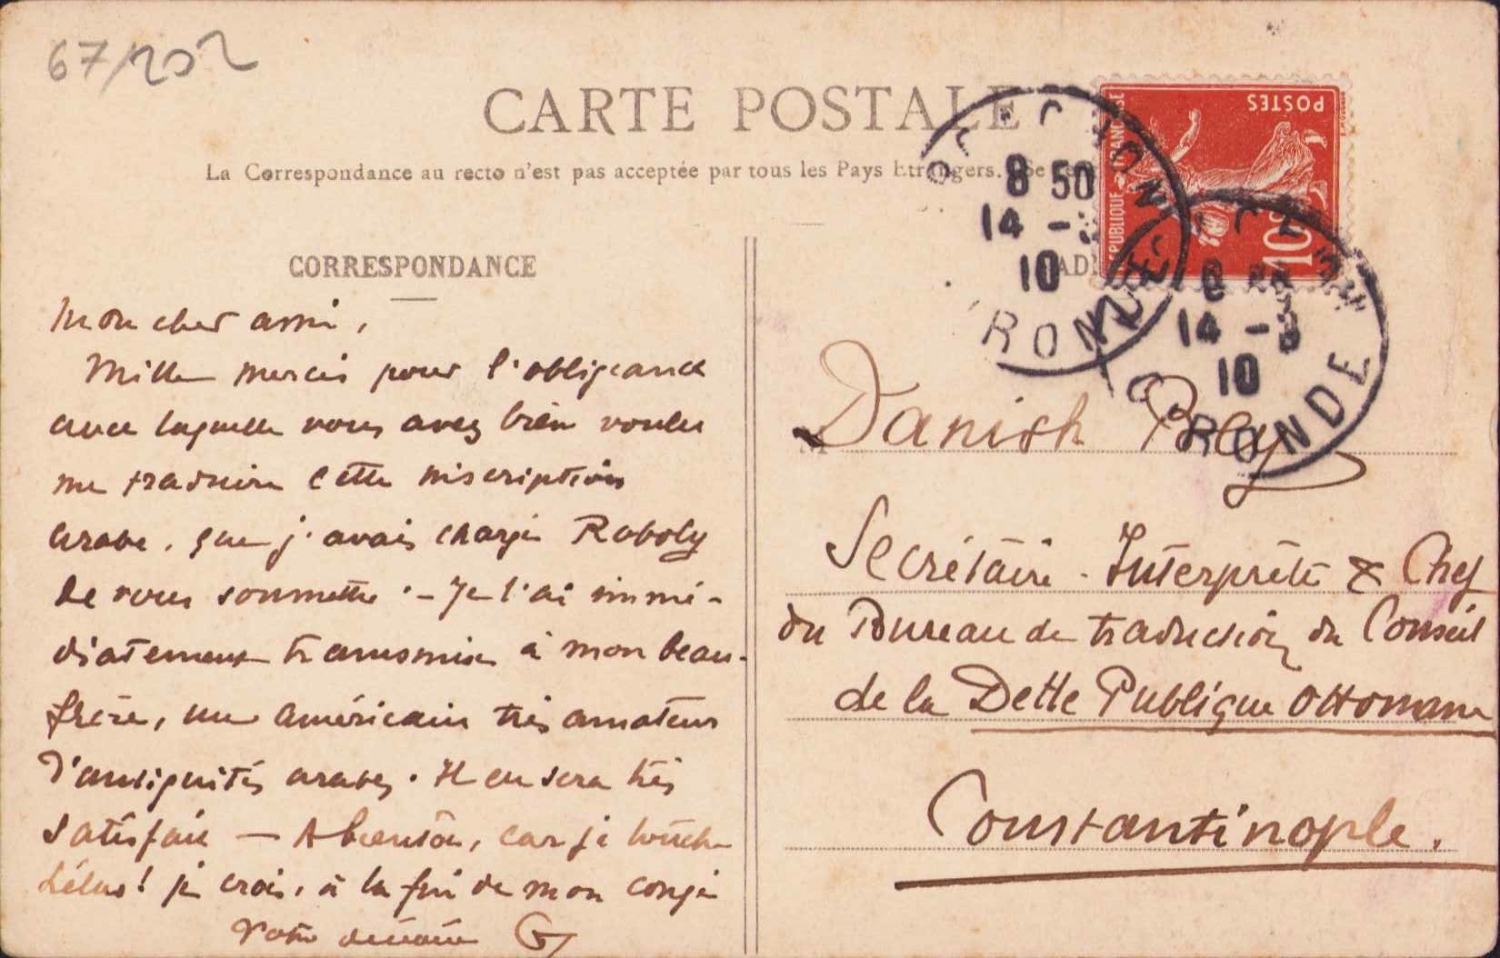 67/202
CARTE POSTALE
La Correspondance au recto n'est pas acceptée par tous les Pays Etrangers. Se
POSTES
REPUBLIQUE FRANÇAISE
10
8 50
14 - 3
10
GIRONDE
8
14 - 3
10
GIRONDE
CORRESPONDANCE
Mon cher ami,
Mille mercis pour l'obligeance
avec laquelle vous avez bien voulu
me traduire cette inscription
arabe, que j'avais chargé Roboly
de vous soumettre. - Je l'ai immé-
diatement transmise à mon beau-
frère, un américain très amateur
d'antiquités arabes. Il en sera très
satisfait — A bientôt, car je touche
hélas! je crois, à la fin de mon congé
Votre dévoué G
Danish Bey
Secrétaire-Interprète & Chef
du Bureau de traduction du Conseil
de la Dette Publique Ottomane
Constantinople.